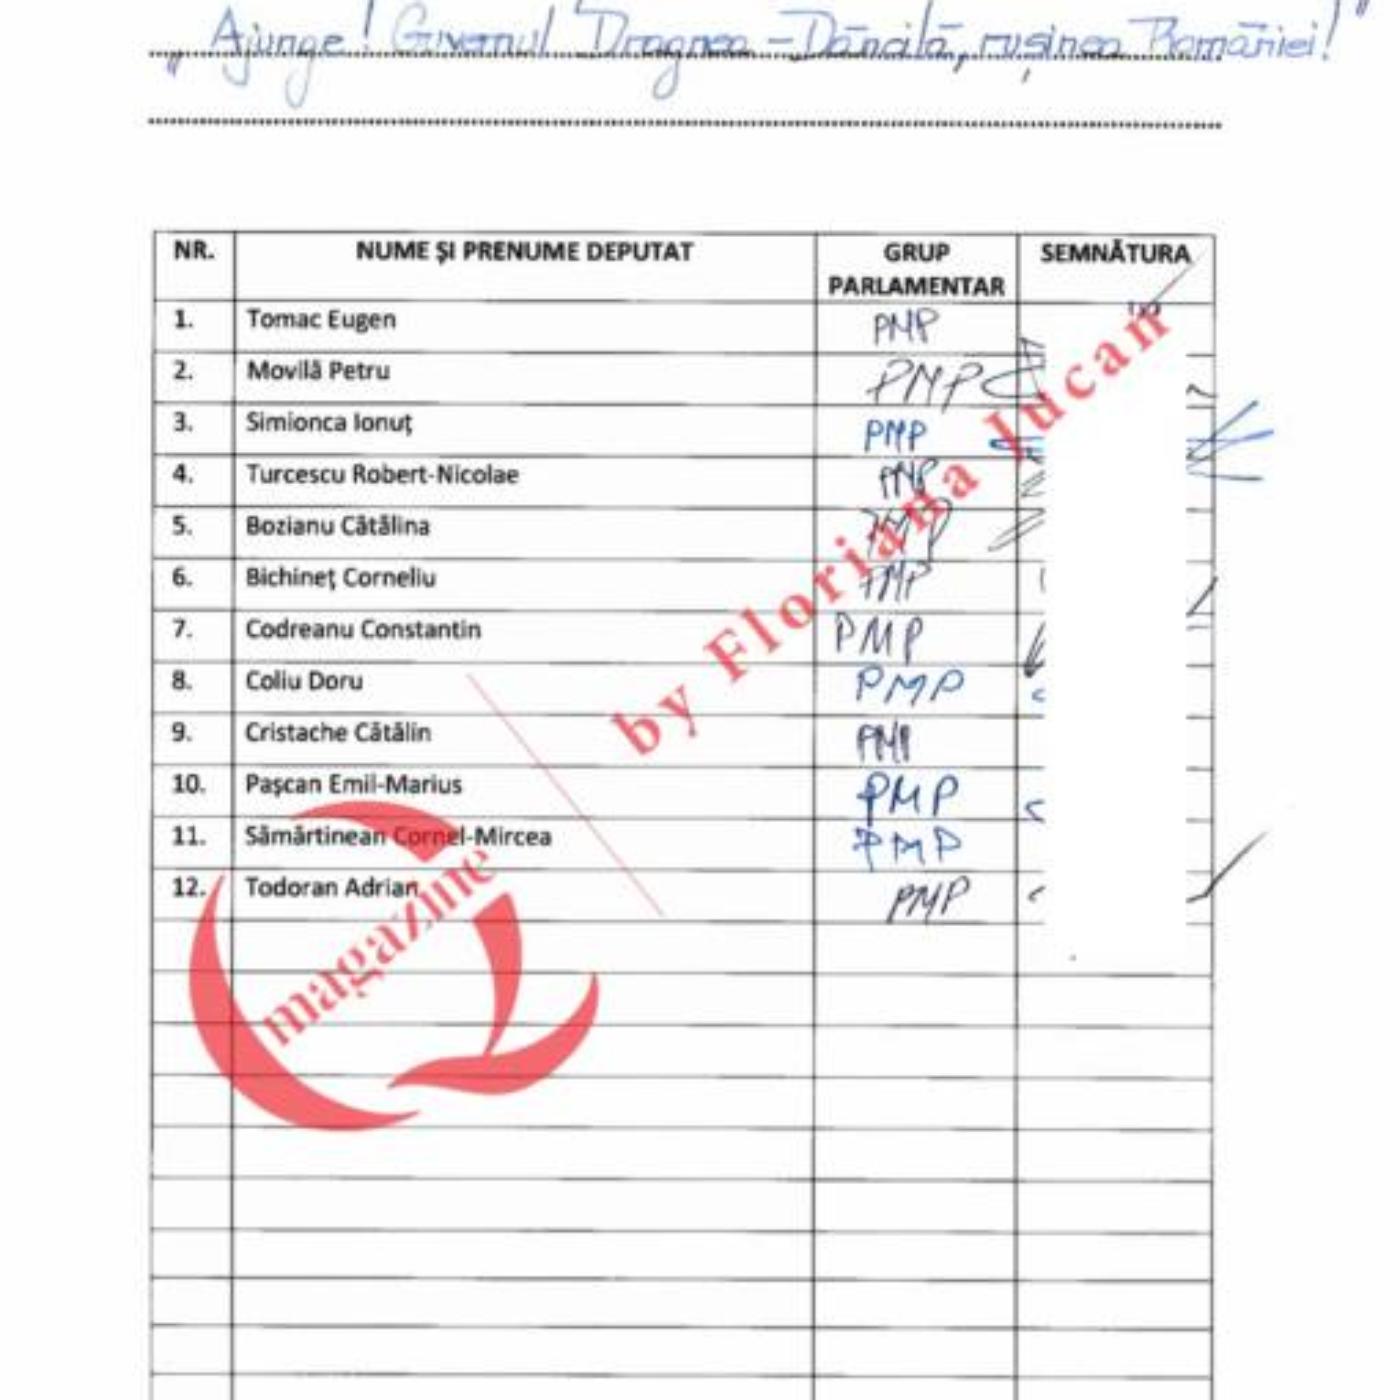 „Ajunge! Guvernul Dragnea – Dăncilă, rușinea României!"
NR. NUME ŞI PRENUME DEPUTAT GRUP PARLAMENTAR SEMNĂTURA
1. Tomac Eugen PMP
2. Movilă Petru PMP
3. Simionca Ionuţ PMP
4. Turcescu Robert-Nicolae PMP
5. Bozianu Cătălina PMP
6. Bichineţ Corneliu PMP
7. Codreanu Constantin PMP
8. Coliu Doru PMP
9. Cristache Cătălin PMP
10. Paşcan Emil-Marius PMP
11. Sămărtinean Cornel-Mircea PMP
12. Todoran Adrian PMP
by Floriana Jucan
magazine